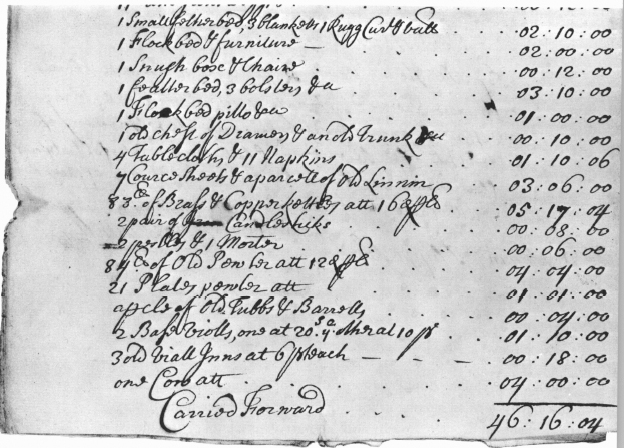 1 Small fetherbed, 3 blanketts 1 Rugg Curt & vall 02 : 10 : 00
1 Flockbed & furniture — 02 : 00 : 00
1 Snugh boxe & Chaire 00 : 12 : 00
1 featherbed, 3 bolsters &a 03 : 10 : 00
1 Flockbed pillo &a 01 : 00 : 00
1 old chest of Drawers & an old Trunk &a 00 : 10 : 00
4 Tablecloths & 11 Napkins 01 : 10 : 06
7 Cource sheets & a parcell of Old Linnin 03 : 06 : 00
83 of Brass & Copper kettles att 16 05 : 17 : 04
2 pair of Candlestiks 00 : 08 : 00
2 & 1 Morter 00 : 06 : 00
84 of Old Pewter att 12 04 : 04 : 00
21 Plates pewter att 01 : 01 : 00
a pcle of Old Tubbs & Barrells 00 : 04 : 00
2 Base Violls, one at 20 other at 10 01 : 10 : 00
3 old Viall Inns at 6 p each — — — 00 : 18 : 00
one Cow att 04 : 00 : 00
Carried Forward 46 : 16 : 04